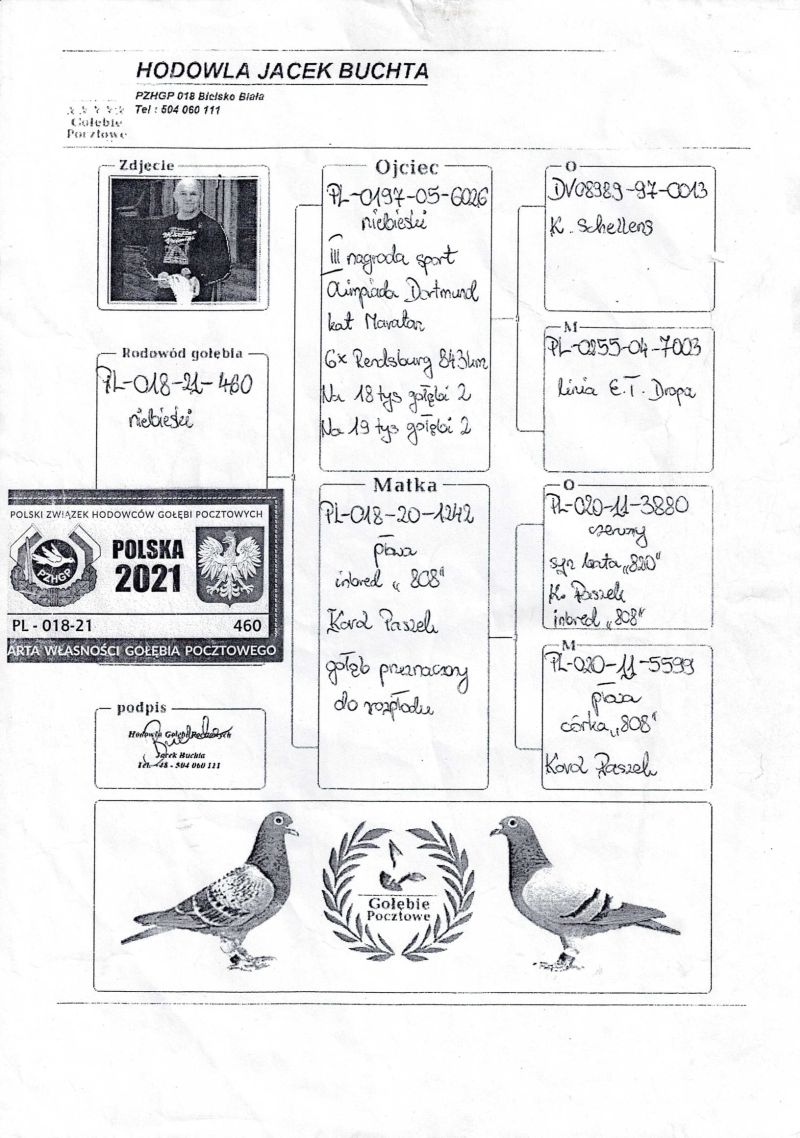 HODOWLA JACEK BUCHTA
PZHGP 018 Bielsko Biała
Tel : 504 060 111
Gołębie
Pocztowe
Zdjecie
Rodowód gołębia
PL-018-21-460
niebieski
POLSKI ZWIĄZEK HODOWCÓW GOŁĘBI POCZTOWYCH
PZHGP
POLSKA
2021
PL - 018-21 460
ARTA WŁASNOŚCI GOŁĘBIA POCZTOWEGO
podpis
Hodowla Gołębi Pocztowych
Jacek Buchta
Tel. +48 - 504 060 111
Ojciec
PL-0197-05-6026
niebieski
III nagroda sport
Olimpiada Dortmund
kat Maraton
6x Rendsburg 843km
Na 18 tys gołębi 2
Na 19 tys gołębi 2
Matka
PL-018-20-1242
płowa
inbred „808"
Karol Paszek
gołąb przeznaczony
do rozpłodu
O
DV08989-97-0013
K. Schellens
M
PL-0255-04-7003
linia E.T. Dropa
O
PL-020-11-3880
czerwony
syn brata „820"
K. Paszek
inbred „808"
M
PL-020-11-5599
płowa
córka „808"
Karol Paszek
Gołębie
Pocztowe